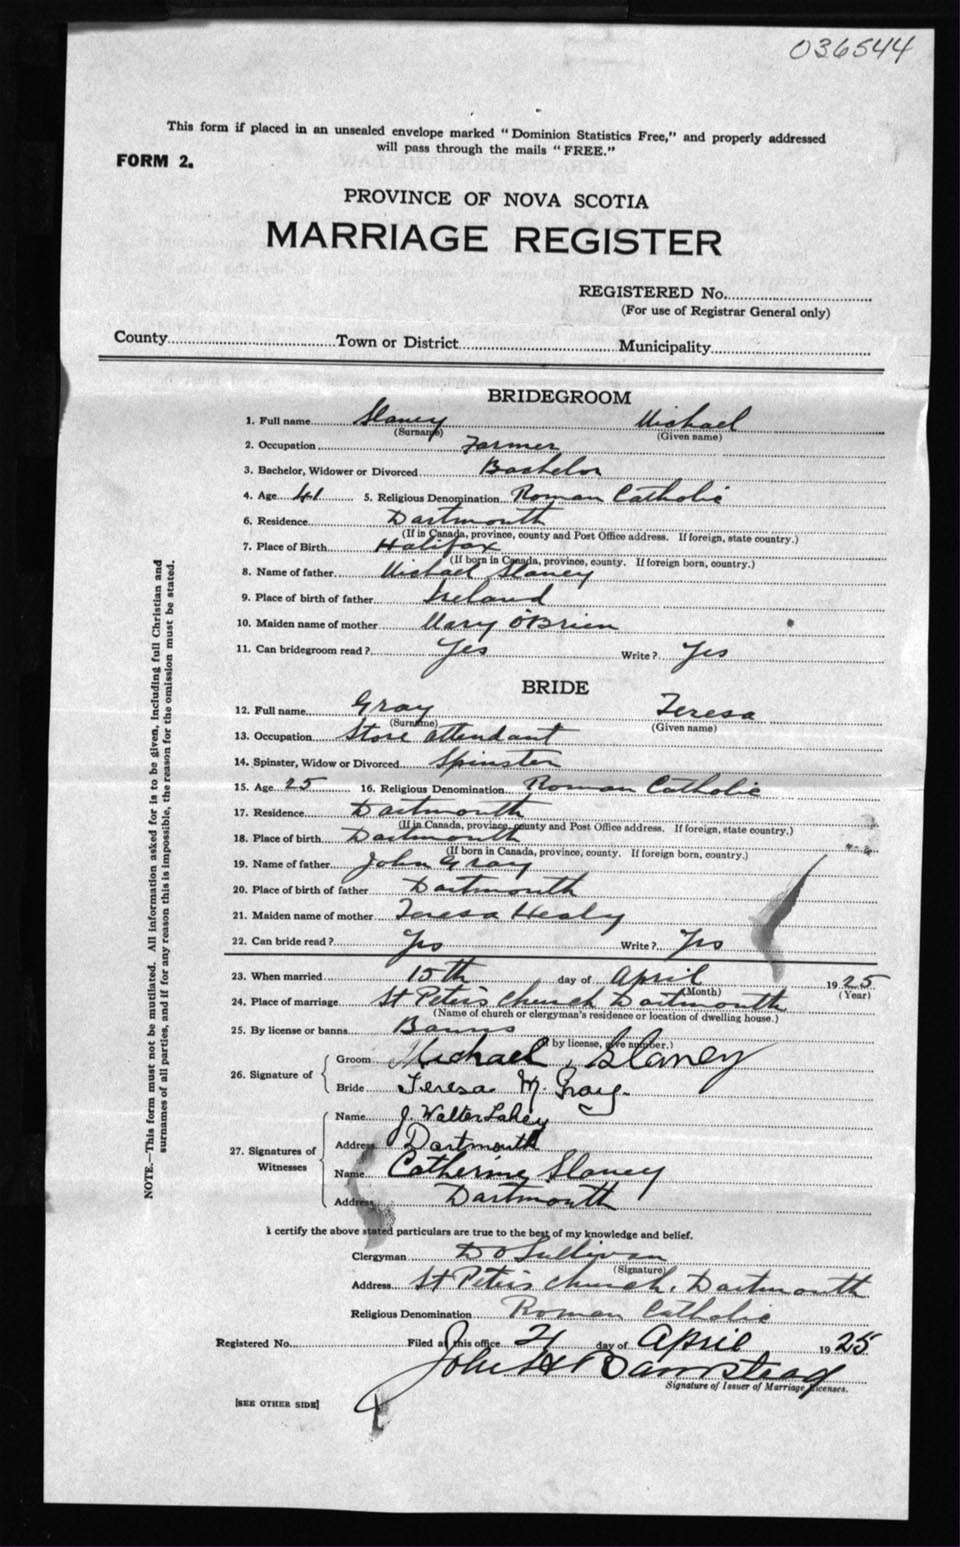 036544
This form if placed in an unsealed envelope marked "Dominion Statistics Free," and properly addressed
will pass through the mails "FREE."
FORM 2.
PROVINCE OF NOVA SCOTIA
MARRIAGE REGISTER
REGISTERED No.
(For use of Registrar General only)
County Town or District Municipality
BRIDEGROOM
1. Full name Slaney Michael
(Surname) (Given name)
2. Occupation Farmer
3. Bachelor, Widower or Divorced Bachelor
4. Age 41 5. Religious Denomination Roman Catholic
6. Residence Dartmouth
(If in Canada, province, county and Post Office address. If foreign, state country.)
7. Place of Birth Halifax
(If born in Canada, province, county. If foreign born, country.)
8. Name of father Michael Slaney
9. Place of birth of father Ireland
10. Maiden name of mother Mary O'Brien
11. Can bridegroom read? Yes Write? Yes
BRIDE
12. Full name Gray Teresa
(Surname) (Given name)
13. Occupation Store attendant
14. Spinster, Widow or Divorced Spinster
15. Age 25 16. Religious Denomination Roman Catholic
17. Residence Dartmouth
(If in Canada, province, county and Post Office address. If foreign, state country.)
18. Place of birth Dartmouth
(If born in Canada, province, county. If foreign born, country.)
19. Name of father John Gray
20. Place of birth of father Dartmouth
21. Maiden name of mother Teresa Healy
22. Can bride read? Yes Write? Yes
23. When married 15th day of April 1925
(Month) (Year)
24. Place of marriage St Peter's Church Dartmouth
(Name of church or clergyman's residence or location of dwelling house.)
25. By license or banns Banns
(If by license, give number.)
26. Signature of
Groom Michael Slaney
Bride Teresa M. Gray.
27. Signatures of Witnesses
Name J. Walter Lahey
Address Dartmouth
Name Catherine Slaney
Address Dartmouth
I certify the above stated particulars are true to the best of my knowledge and belief.
Clergyman D O'Sullivan
(Signature)
Address St Peter's Church, Dartmouth
Religious Denomination Roman Catholic
Registered No. Filed at this office 21 day of April 1925
John H
Signature of Issuer of Marriage Licenses.
[SEE OTHER SIDE]
NOTE.—This form must not be mutilated. All information asked for is to be given, including full Christian and
surnames of all parties, and if for any reason this is impossible, the reason for the omission must be stated.